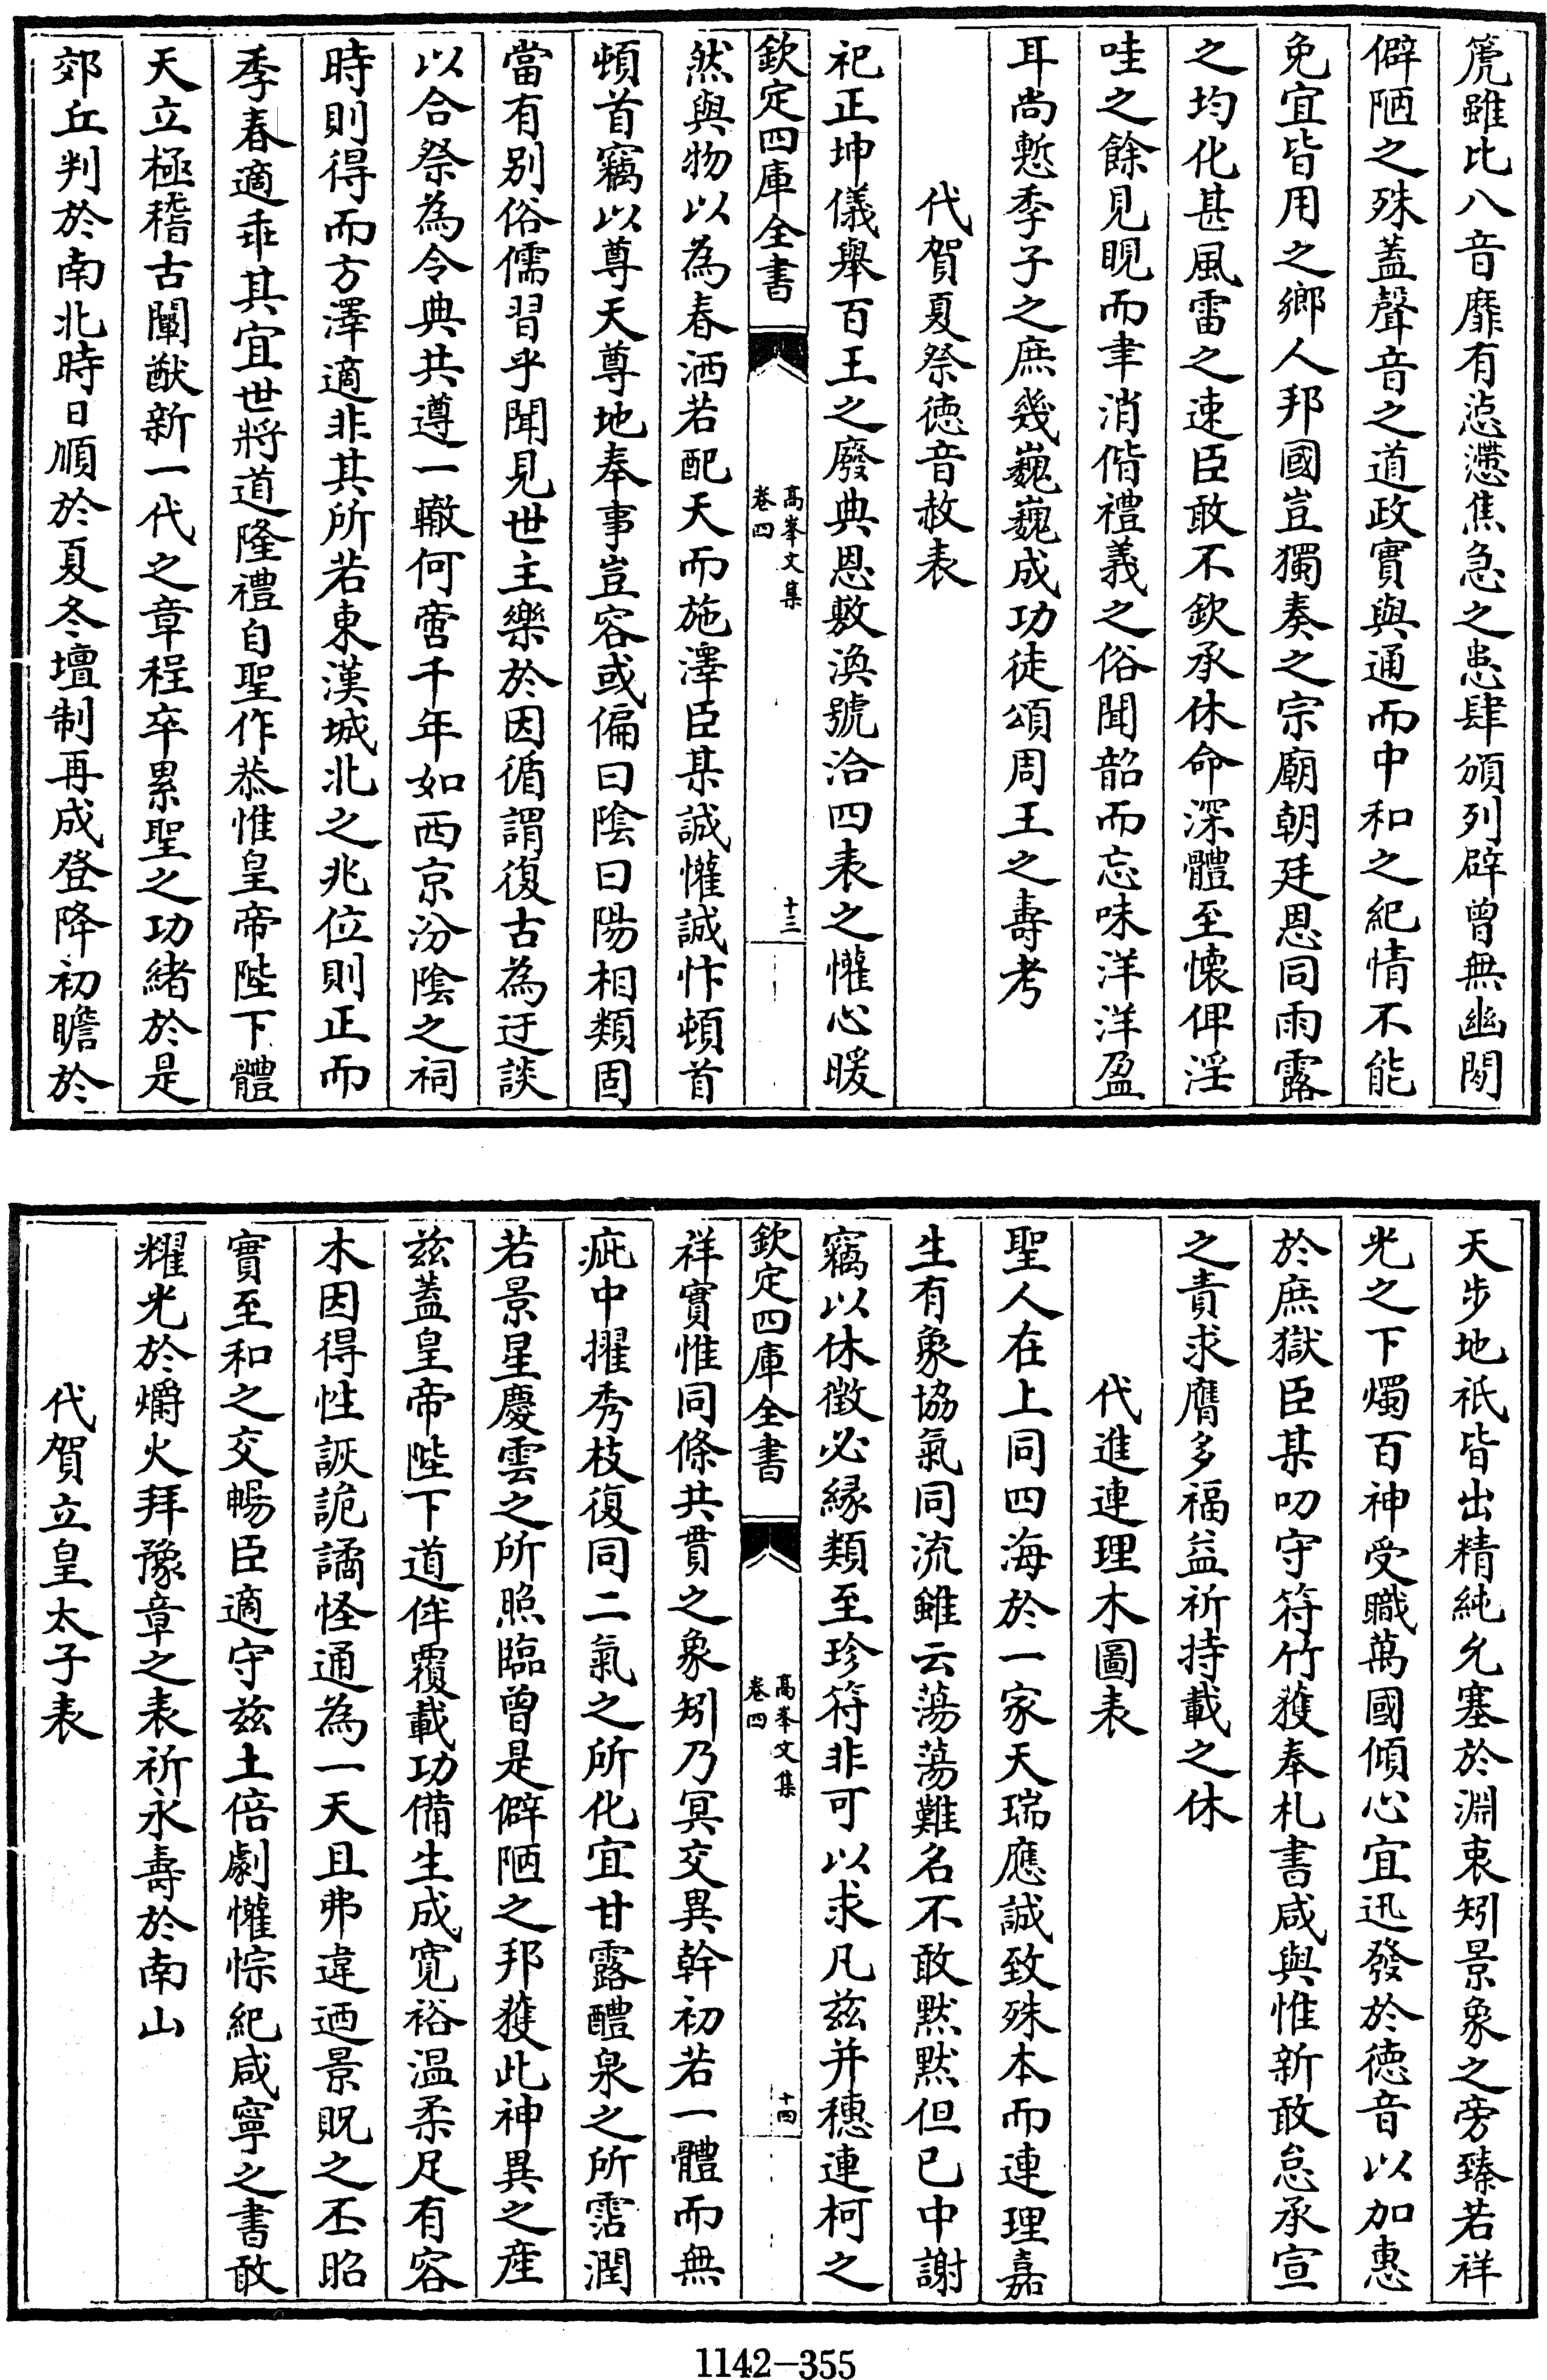 箎雖比八音靡有惉懘焦急之患肆頒列辟曾無幽閒
僻陋之殊蓋聲音之道政實與通而中和之紀情不能
免宜皆用之鄉人邦國豈獨奏之宗廟朝廷恩同雨露
之均化甚風雷之速臣敢不欽承休命深體至懷俾淫
哇之餘見晛而聿消偕禮義之俗聞韶而忘味洋洋盈
耳尚慙季子之庶幾巍巍成功徒頌周王之壽考
代賀夏祭徳音赦表
祀正坤儀舉百王之廢典恩敷渙號洽四表之懽心暖
欽定四庫全書
高峯文集
卷四
十三
然與物以為春洒若配天而施澤臣某誠懽誠忭頓首
頓首竊以尊天尊地奉事豈容或偏曰陰曰陽相類固
當有别俗儒習乎聞見世主樂於因循謂復古為迂談
以合祭為令典共遵一轍何啻千年如西京汾陰之祠
時則得而方澤適非其所若東漢城北之兆位則正而
季春適乖其宜世將道隆禮自聖作恭惟皇帝陛下體
天立極稽古闡猷新一代之章程卒累聖之功緒於是
郊丘判於南北時日順於夏冬壇制再成登降初瞻於
天步地祇皆出精純允塞於淵衷矧景象之旁臻若祥
光之下燭百神受職萬國傾心宜迅發於徳音以加惠
於庶獄臣某叨守符竹獲奉札書咸與惟新敢怠承宣
之責求膺多福益祈持載之休
代進連理木圖表
聖人在上同四海於一家天瑞應誠致殊本而連理嘉
生有象協氣同流雖云蕩蕩難名不敢黙黙但已中謝
竊以休徵必緣類至珍符非可以求凡兹并穗連柯之
欽定四庫全書
高峯文集
卷四
十四
祥實惟同條共貫之象矧乃冥交異幹初若一體而無
疵中擢秀枝復同二氣之所化宜甘露醴泉之所霑潤
若景星慶雲之所照臨曾是僻陋之邦獲此神異之産
兹蓋皇帝陛下道侔覆載功備生成寛裕温柔足有容
木因得性詼詭譎怪通為一天且弗違迺景貺之丕昭
實至和之交暢臣適守兹土倍劇懽悰紀咸寧之書敢
耀光於爝火拜豫章之表祈永壽於南山
代賀立皇太子表
1142-355